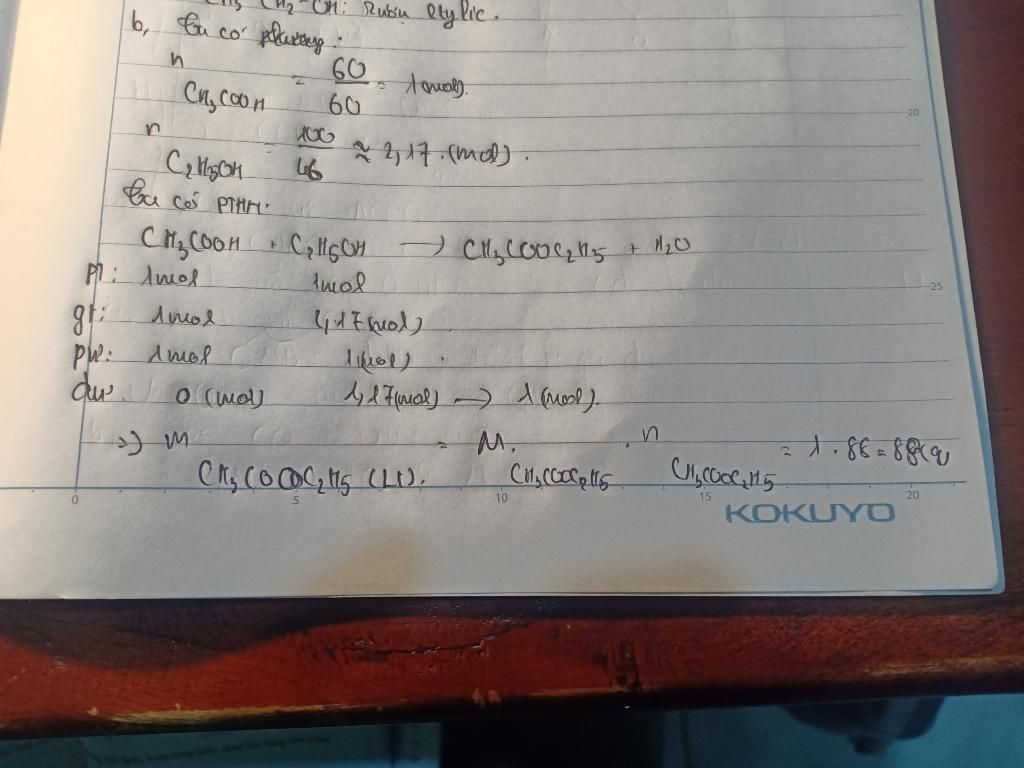 CH3 CH2-OH: Rượu Etylic.
b, Ta có phương:
n CH3COOH = 60/60 = 1(mol).
n C2H5OH = 100/46 ≈ 2,17.(mol).
Ta có PTHH:
CH3COOH + C2H5OH → CH3COOC2H5 + H2O
pt: 1mol 1mol
gt: 1mol 2,17(mol)
pư: 1mol 1(mol).
dư. 0 (mol) 1,17(mol) → 1(mol).
=) m CH3COOC2H5 (Lt). = M. CH3COOC2H5 . n CH3COOC2H5 = 1.88=88(g)
0 5 10 15 20
20
25
KOKUYO